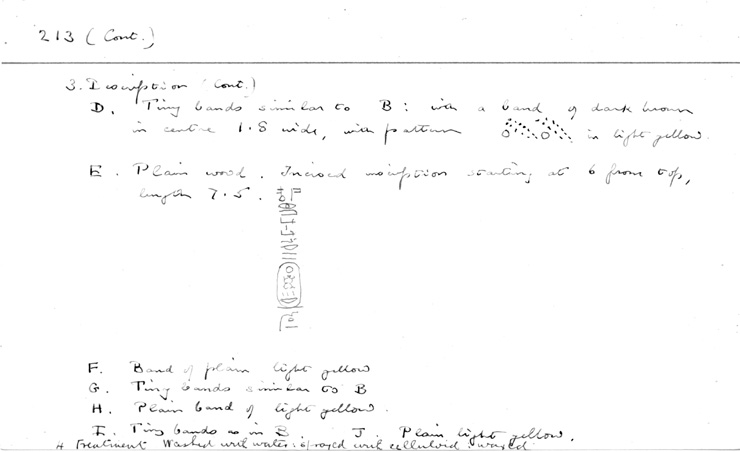 213 (Cont.)
3. Description (Cont.)
D. Tiny bands similar to B: with a band of dark brown
in centre 1.8 wide, with pattern in light yellow.
E. Plain wood. Incised inscription starting at 6 from top,
length 7.5.
F. Band of plain light yellow
G. Tiny bands similar to B
H. Plain band of light yellow.
I. Tiny bands as in B J. Plain light yellow.
4 Treatment Washed with water: sprayed with celluloid: waxed